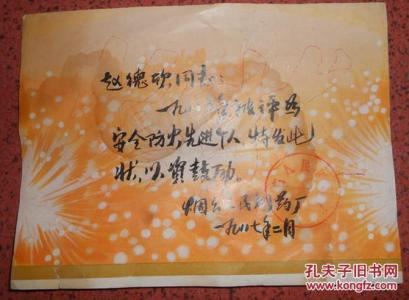 赵德欣同志：
一九八六年被评为
安全防火先进个人 特发此
状，以资鼓励。
中国人民制药厂
一九八七年二月
孔夫子旧书网